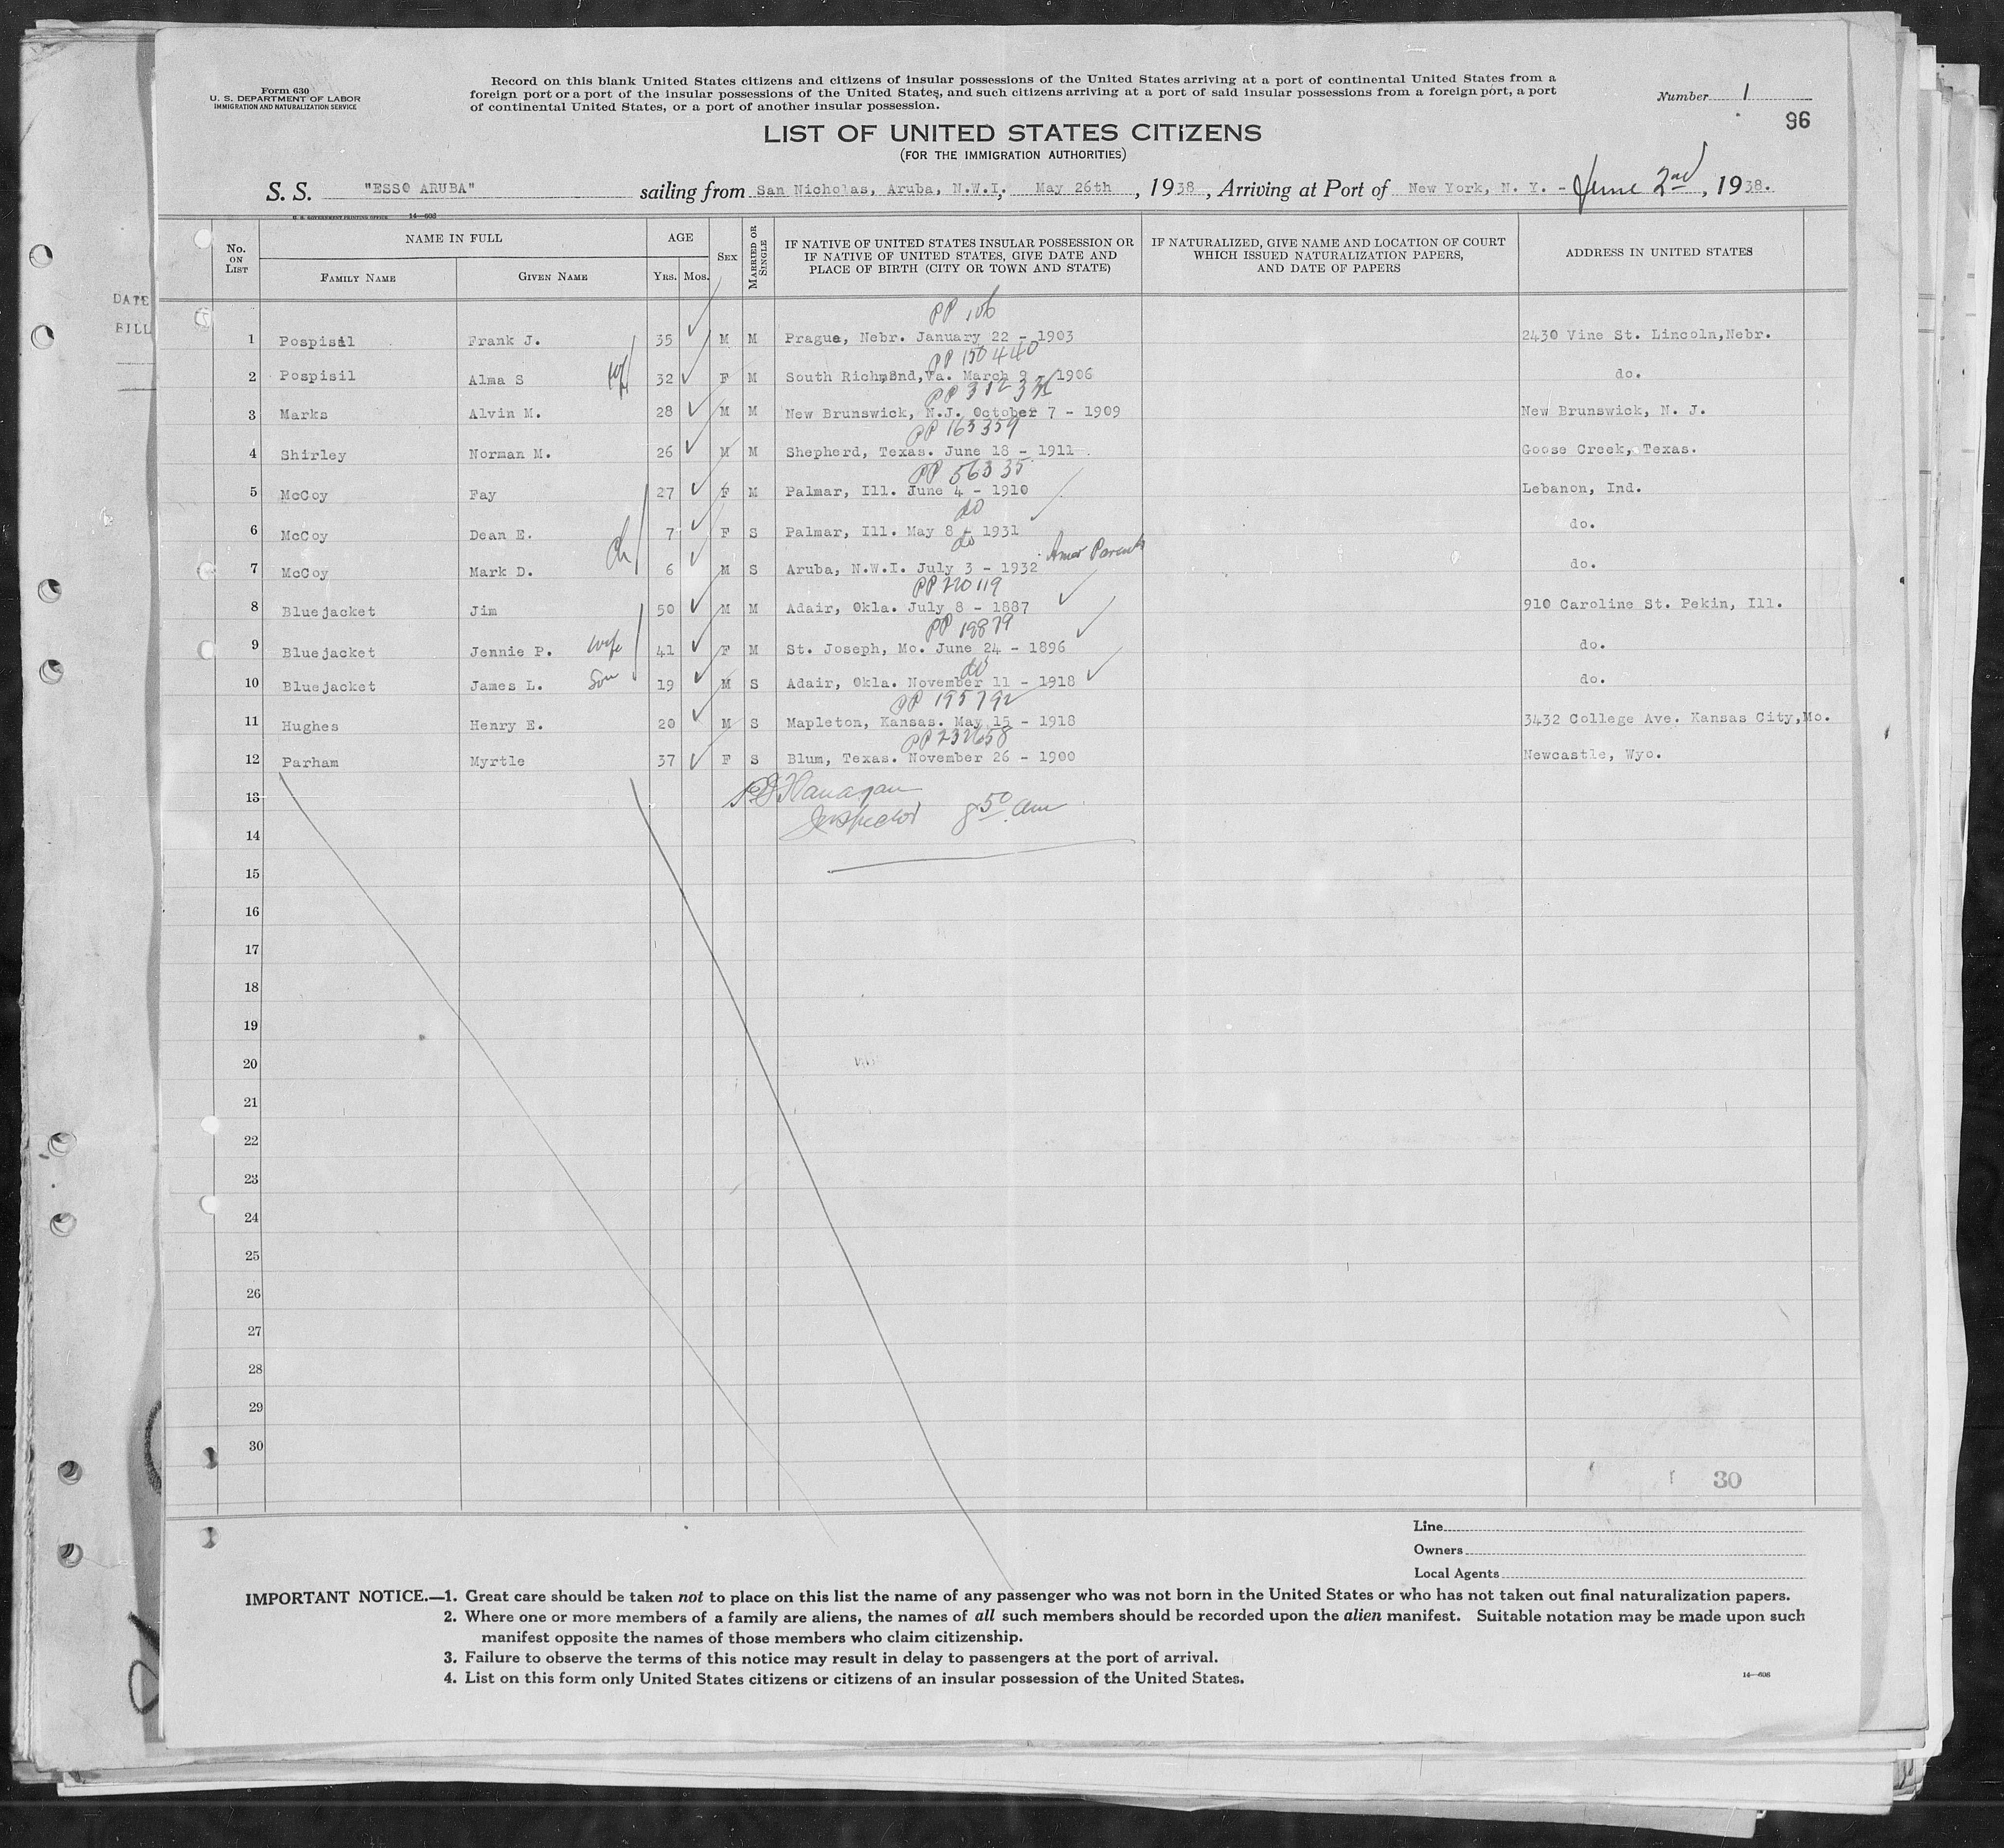 DATE
BILL
Form 630
U. S. DEPARTMENT OF LABOR
IMMIGRATION AND NATURALIZATION SERVICE
Record on this blank United States citizens and citizens of insular possessions of the United States arriving at a port of continental United States from a
foreign port or a port of the insular possessions of the United States, and such citizens arriving at a port of said insular possessions from a foreign port, a port
of continental United States, or a port of another insular possession.
Number 1
96
LIST OF UNITED STATES CITIZENS
(FOR THE IMMIGRATION AUTHORITIES)
S. S. "ESSO ARUBA" sailing from San Nicholas, Aruba, N.W.I., May 26th, 1938, Arriving at Port of New York, N. Y. - June 2nd, 1938.
U. S. GOVERNMENT PRINTING OFFICE 14—606
No. ON LIST
NAME IN FULL
FAMILY NAME
GIVEN NAME
AGE
YRS. MOS.
SEX
MARRIED OR SINGLE
IF NATIVE OF UNITED STATES INSULAR POSSESSION OR
IF NATIVE OF UNITED STATES, GIVE DATE AND
PLACE OF BIRTH (CITY OR TOWN AND STATE)
IF NATURALIZED, GIVE NAME AND LOCATION OF COURT
WHICH ISSUED NATURALIZATION PAPERS,
AND DATE OF PAPERS
ADDRESS IN UNITED STATES
PP 106
1 Pospisil Frank J. 35 M M Prague, Nebr. January 22 - 1903 2430 Vine St. Lincoln,Nebr.
PP 150440
2 Pospisil Alma S wf 32 F M South Richmond,Va. March 9 - 1906 do.
PP
3 Marks Alvin M. 28 M M New Brunswick, N.J. October 7 - 1909 New Brunswick, N. J.
PP 163359
4 Shirley Norman M. 26 M M Shepherd, Texas. June 18 - 1911 Goose Creek, Texas.
PP 56335
5 McCoy Fay 27 F M Palmar, Ill. June 4 - 1910 Lebanon, Ind.
do
6 McCoy Dean E. 7 F S Palmar, Ill. May 8 - 1931 do.
do Amer Parents
7 McCoy Mark D. ch 6 M S Aruba, N.W.I. July 3 - 1932 do.
PP 220119
8 Bluejacket Jim 50 M M Adair, Okla. July 8 - 1887 910 Caroline St. Pekin, Ill.
PP 19879
9 Bluejacket Jennie P. wife 41 F M St. Joseph, Mo. June 24 - 1896 do.
do
10 Bluejacket James L. Son 19 M S Adair, Okla. November 11 - 1918 do.
PP 195792
11 Hughes Henry E. 20 M S Mapleton, Kansas. May 15 - 1918 3432 College Ave. Kansas City,Mo.
PP 232658
12 Parham Myrtle 37 F S Blum, Texas. November 26 - 1900 Newcastle, Wyo.
13 Flanagan
14 Inspector 8 50 am
15
16
17
18
19
20
21
22
23
24
25
26
27
28
29
30
30
Line
Owners
Local Agents
IMPORTANT NOTICE.—1. Great care should be taken not to place on this list the name of any passenger who was not born in the United States or who has not taken out final naturalization papers.
2. Where one or more members of a family are aliens, the names of all such members should be recorded upon the alien manifest. Suitable notation may be made upon such
manifest opposite the names of those members who claim citizenship.
3. Failure to observe the terms of this notice may result in delay to passengers at the port of arrival.
4. List on this form only United States citizens or citizens of an insular possession of the United States.
14—606